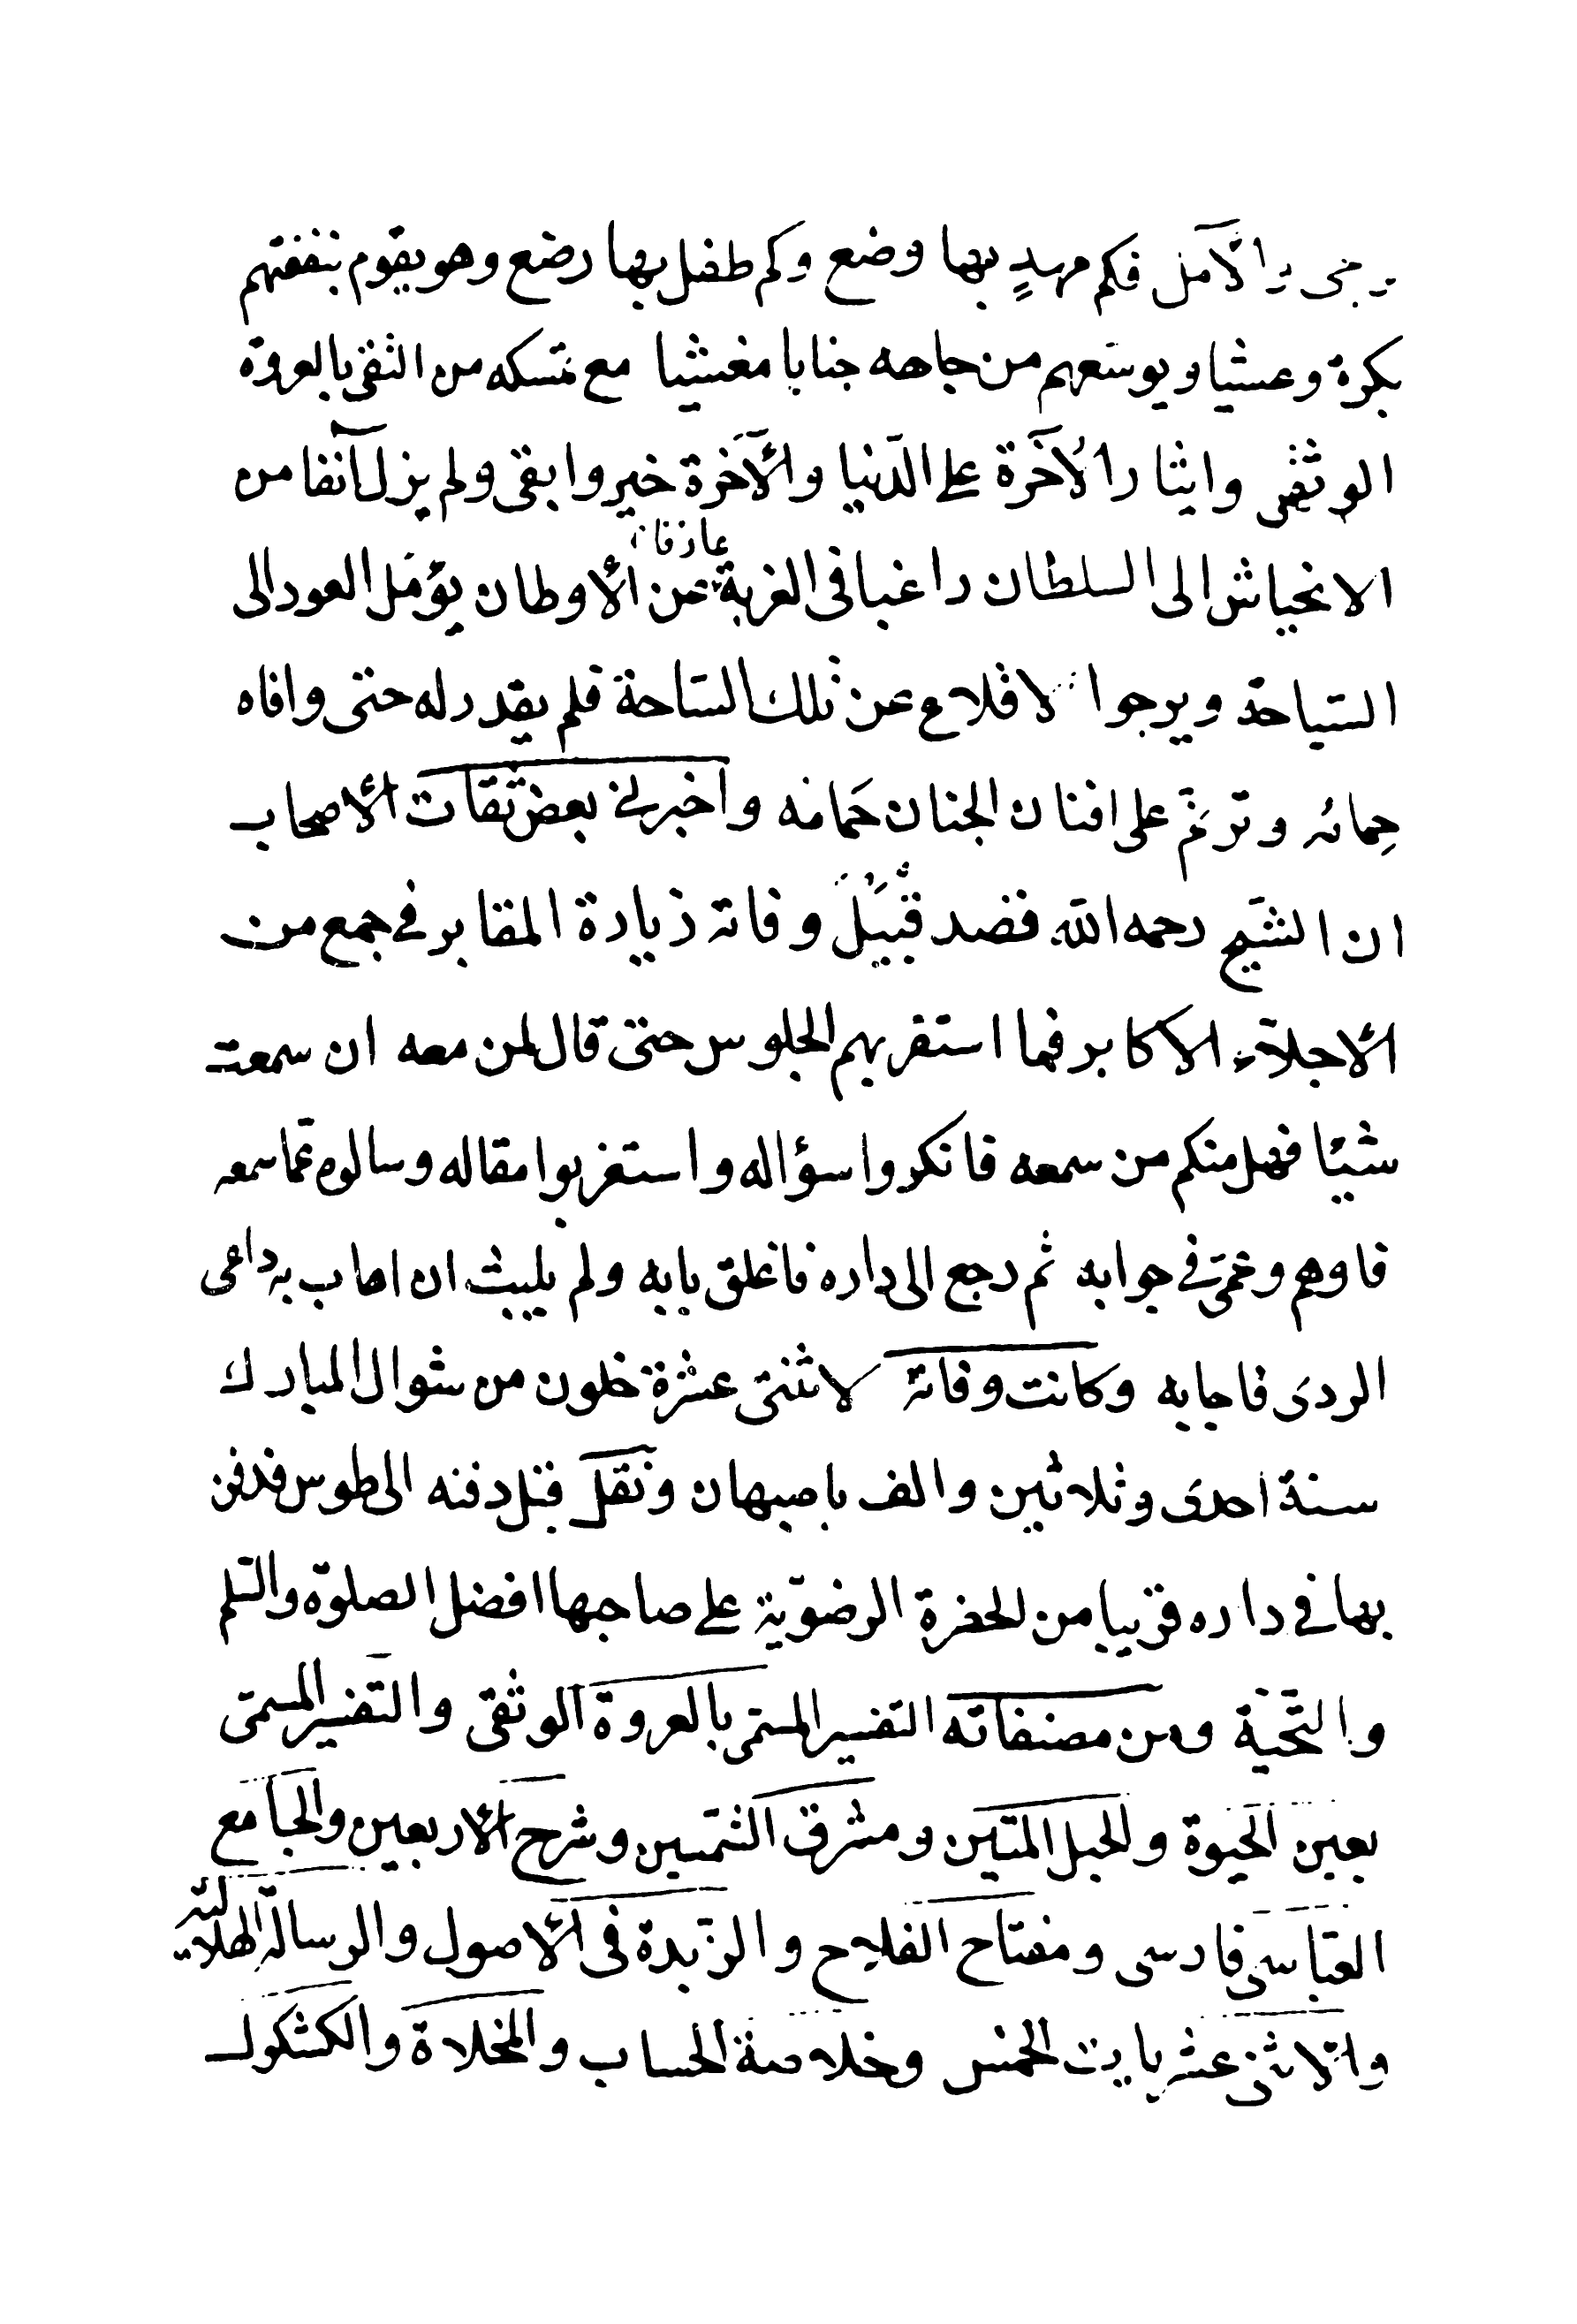 والآمل فكم مهدٍ بها وضع وكم طفل بها رضع وهو يقوم بنفقتهم
بكرة وعشيا ويوسعهم من جاهه جنابا مغشيا مع تمسكه من التقى بالعروة
الوثقى وايثار الآخرة على الدنيا والآخرة خير وابقى ولم يزل آنفا من
الانحياش الى السلطان راغبا فى الغربة عن الأوطان يؤمل العود الى
السياحة ويرجوا الاقلاع عن تلك الساحة فلم يقدر له حتى وافاه
حِمامه وترنّم على افنان الجنان حَمامه واخبرنى بعض ثقات الأصحاب
ان الشيخ رحمه الله قصد قُبَيْلَ وفاته زيارة المقابر فى جمع من
الأجلاء الأكابر فما استقر بهم الجلوس حتى قال لمن معه ان سمعت
شيئا فهل منكم من سمعه فانكروا سؤاله واستغربوا مقاله وسالوه عما سمعه
فاوهم وعمّى فى جوابه ثم رجع الى داره فاغلق بابه ولم يلبث ان اهاب به داعى
الردى فاجابه وكانت وفاته لاثنتى عشرة خلون من شوال المبارك
سنة احدى وثلاثين والف باصبهان ونقل قبل دفنه الى طوس فدفن
بها فى داره قريبا من الحضرة الرضويّة على صاحبها افضل الصلوة والسلم
والتّحيّة ومن مصنفاته التفسير المسمى بالعروة الوثقى والتفسير المسمى
بعين الحيوة والحبل المتين ومشرق الشمسين وشرح الأربعين والجامع
العباسى فارسى ومفتاح الفلاح والزبدة فى الأصول والرسالة الهلالية
والاثنى عشريات الخمس وخلاصة الحساب والمخلاة والكشكول